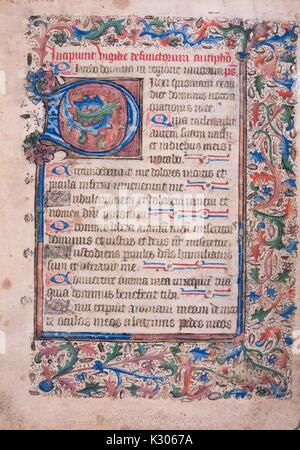 Incipiunt vigilie defunctorum antipho
Placebo domino in regione vivorum ps
Dilexi quoniam exau
diet dominus vocem
orationis mee.
Quia inclinavit
aurem suam michi
et in diebus meis in
vocabo.
Circumdederunt me dolores mortis et
pericula inferni invenerunt me
Tribulationem et dolorem inveni et
nomen dni invocavi
O domine libera animam meam misericors
dominus et iustus et deus nr miseretur
Custodiens parvulos dns humiliatus
sum et liberavit me
Convertere anima mea in requiem tuam
quia dominus benefecit tibi
Quia eripuit animam meam de mor
te oculos meos a lacrimis pedes meos
alamy
Image ID: K3067A
www.alamy.com